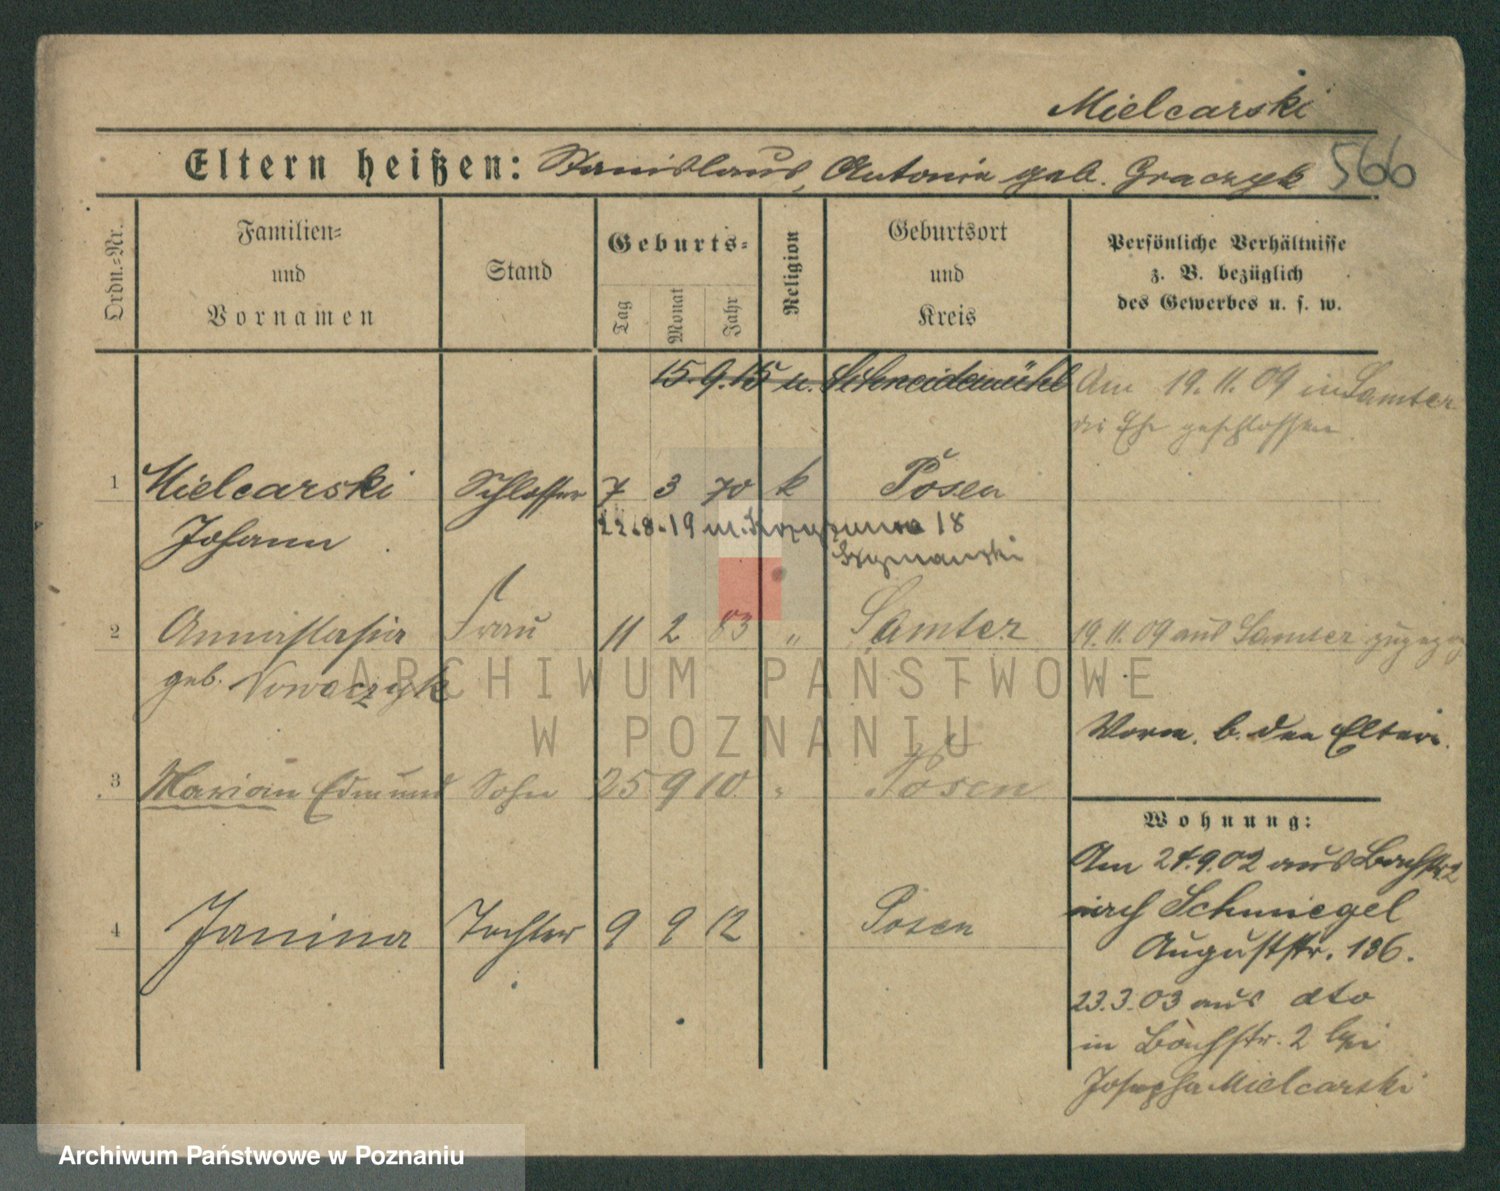 Mielcarski
Eltern heißen: Stanislaus, Antonie geb. Graczyk 566
Ordn.-Nr.
Familien-
und
Vornamen
Stand
Geburts-
Tag
Monat
Jahr
Religion
Geburtsort
und
Kreis
Persönliche Verhältnisse
z. B. bezüglich
des Gewerbes u. s. w.
15. 9. 15 n. Schneidemühl
Am 19. 11. 09 in Samter
die Ehe geschlossen.
1 Mielcarski Schlosser 7 3 70 k Posen
Johann
22.8.19 18
Szymanski
2 Annastasia Frau 11 2 83 " Samter 19. 11. 09 aus Samter
geb. Nowaczyk
Vorm. b. den Eltern.
3 Marian Edmund Sohn 25 9 10 " Posen
Wohnung:
Am 24.9.02 aus Bachstr. 2
nach Schmiegel
4 Janina Tochter 9 9 12 Posen
Auguststr. 136.
23. 3. 03 aus dto
in Bachstr. 2 bei
Josepha Mielcarski
ARCHIWUM PAŃSTWOWE
W POZNANIU
Archiwum Państwowe w Poznaniu